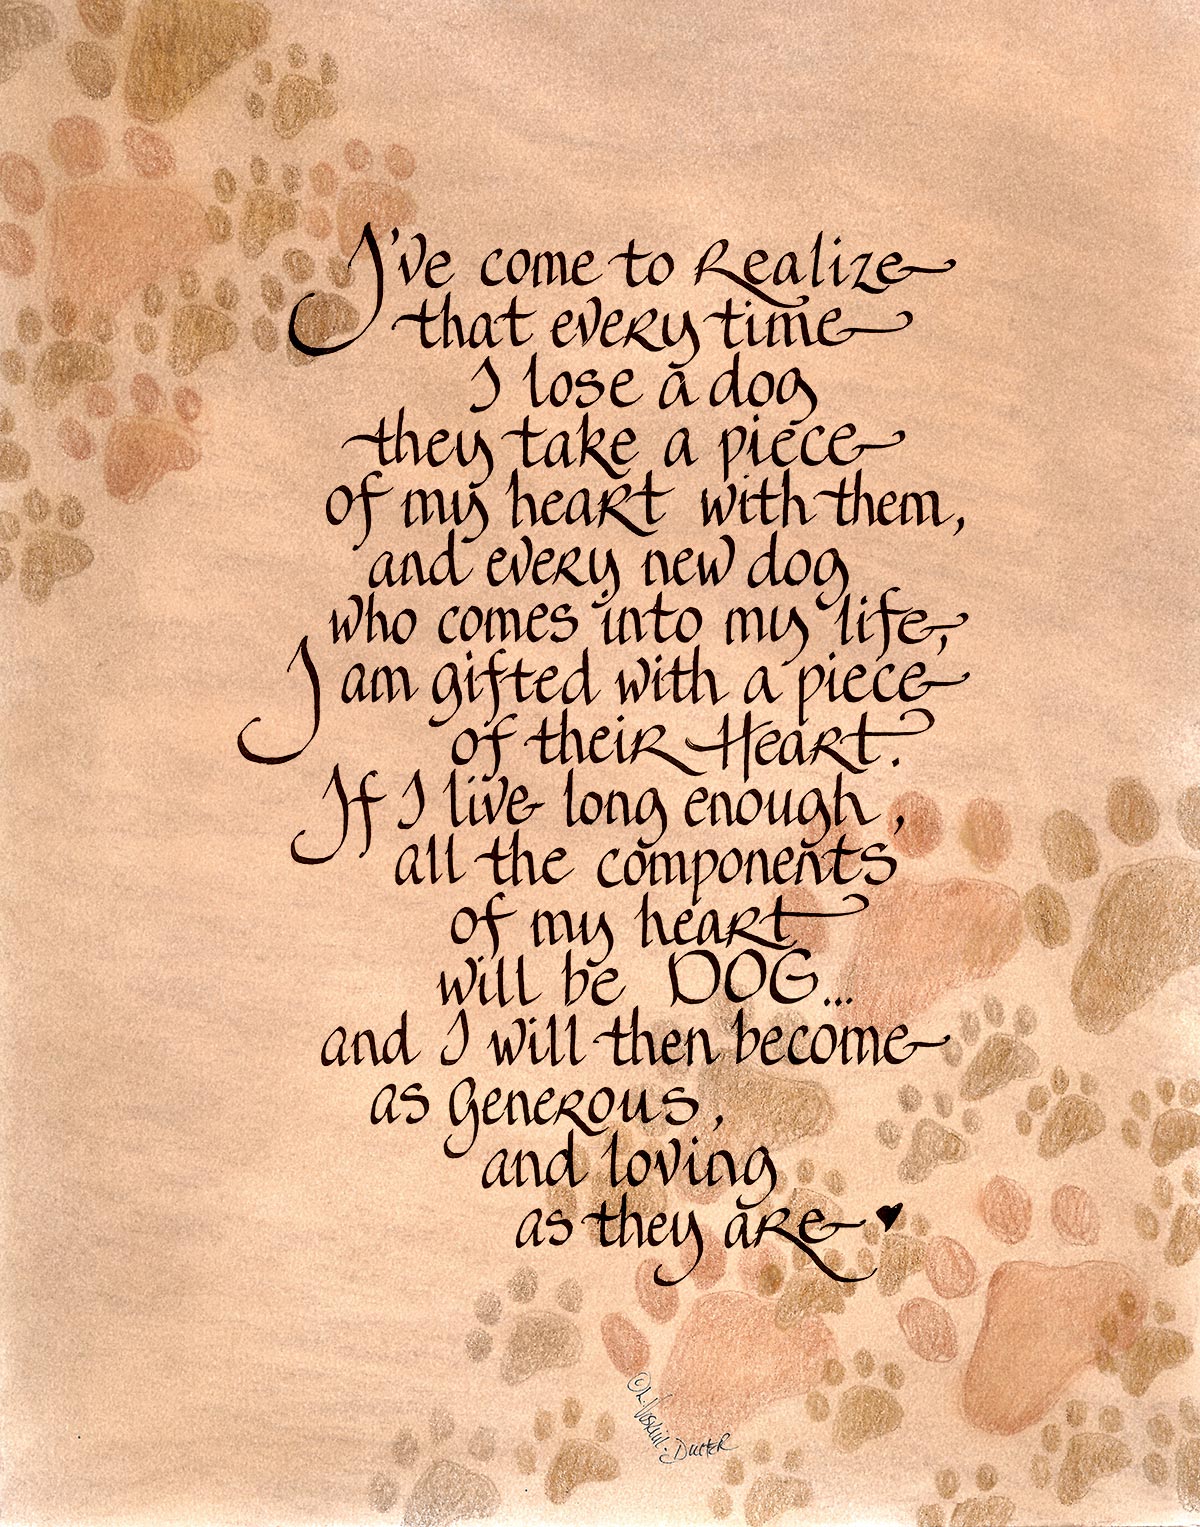 I've come to Realize
that every time
I lose a dog
they take a piece
of my heart with them,
and every new dog
who comes into my life,
I am gifted with a piece
of their Heart.
If I live long enough,
all the components
of my heart
will be DOG...
and I will then become
as Generous,
and loving
as they are
©